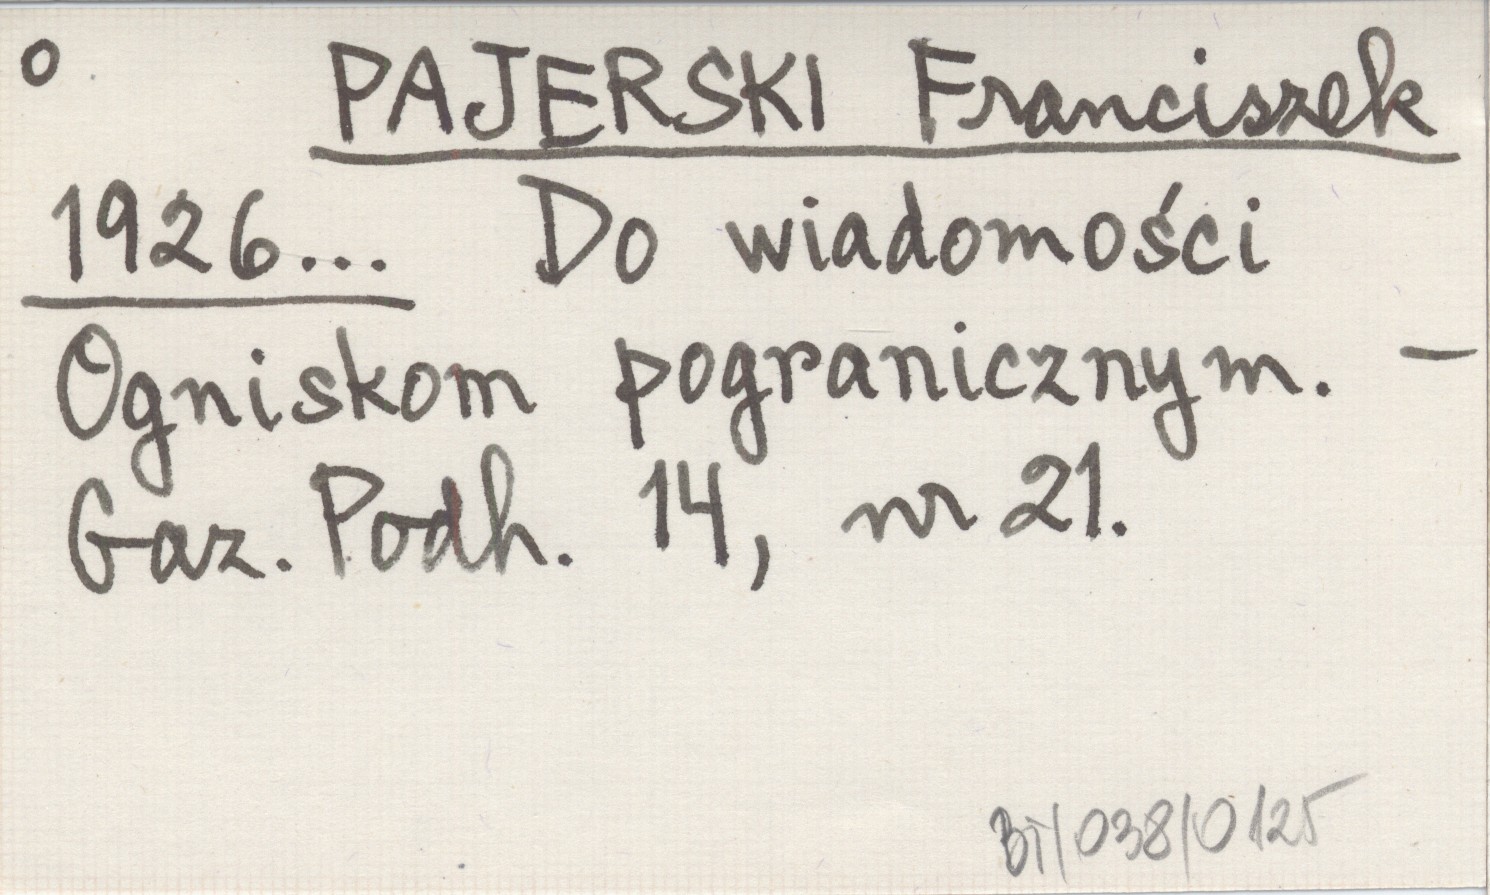 o PAJERSKI Franciszek
1926... Do wiadomości
Ogniskom pogranicznym. —
Gaz. Podh. 14, nr 21.
BT/038/0125